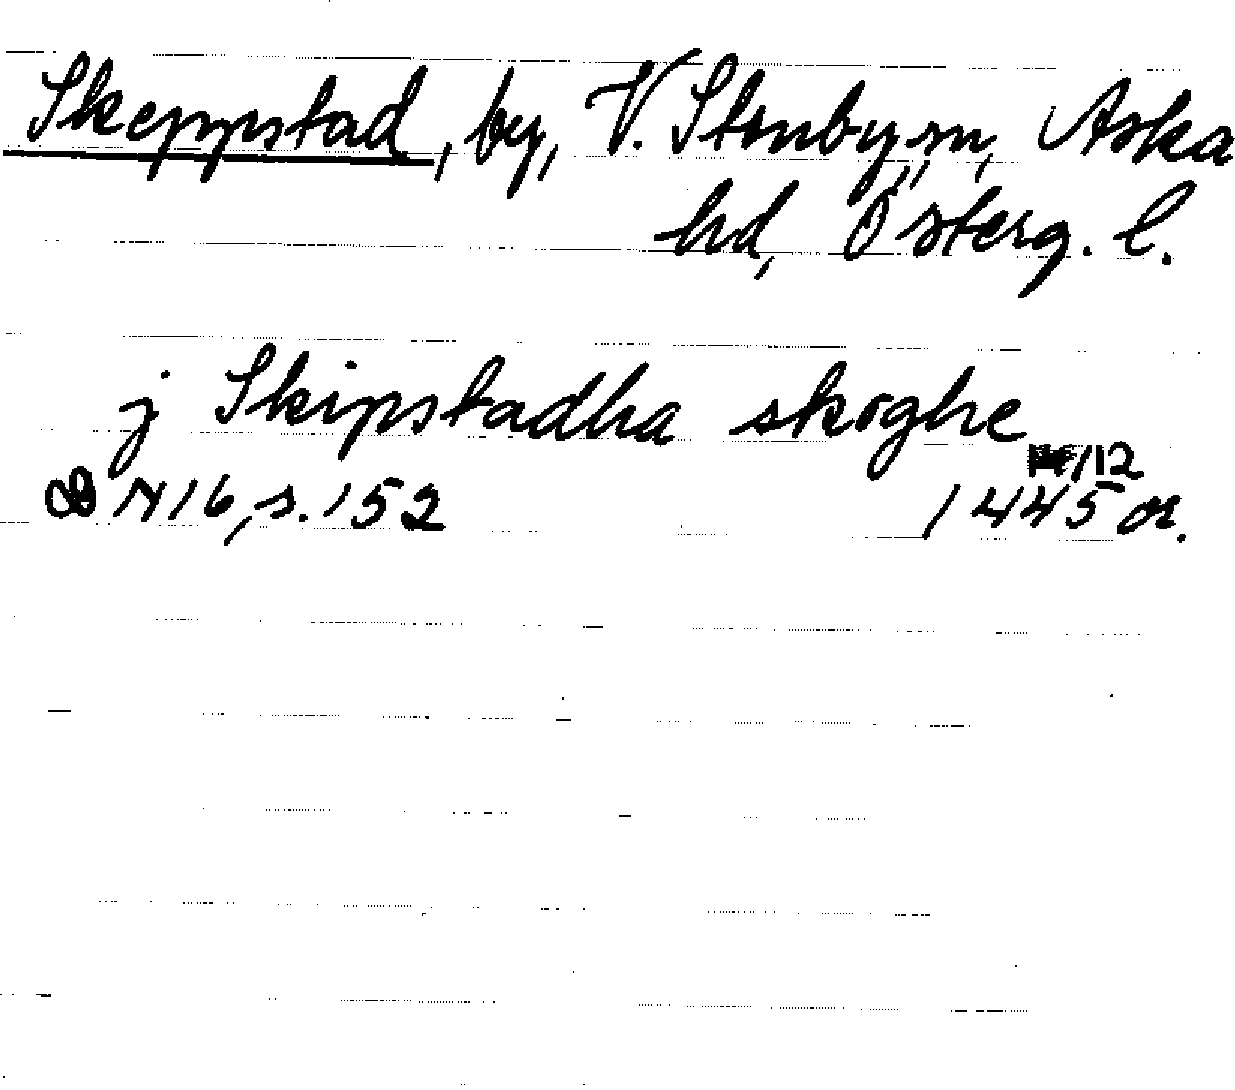 Skeppstad, by, V. Stenby sn, Aska
hd, Österg. l.
j Skipstadha skoghe
/12
N 16, s. 152 1445 or.